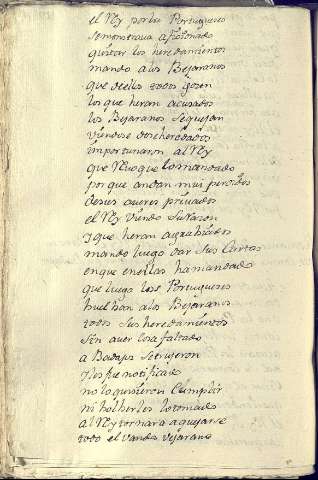 el Rey por los Portugueses
demonstrava aficionado
quitar los heredamientos
mando a los Bejaranos
que de ellos todos gozen
los que heran acusados
los Bejaranos se quejan
viendose desheredados
importunaron al Rey
que Revoque lo mandado
porque andan mui perdidos
de sus averes privados
el Rey viendo su Razon
y que heran agrabiados
mando luego dar sus Cartas
en que en ellas ha mandado
que luego los Portugueses
buelban a los Bejaranos
todos sus heredamientos
sin aver cosa faltado
a Badajoz se trujeron
y les fue notificado
no lo quisieron Cumplir
ni bolberles lo tomado
al Rey tornara a quejarse
todo el vando Vejarano